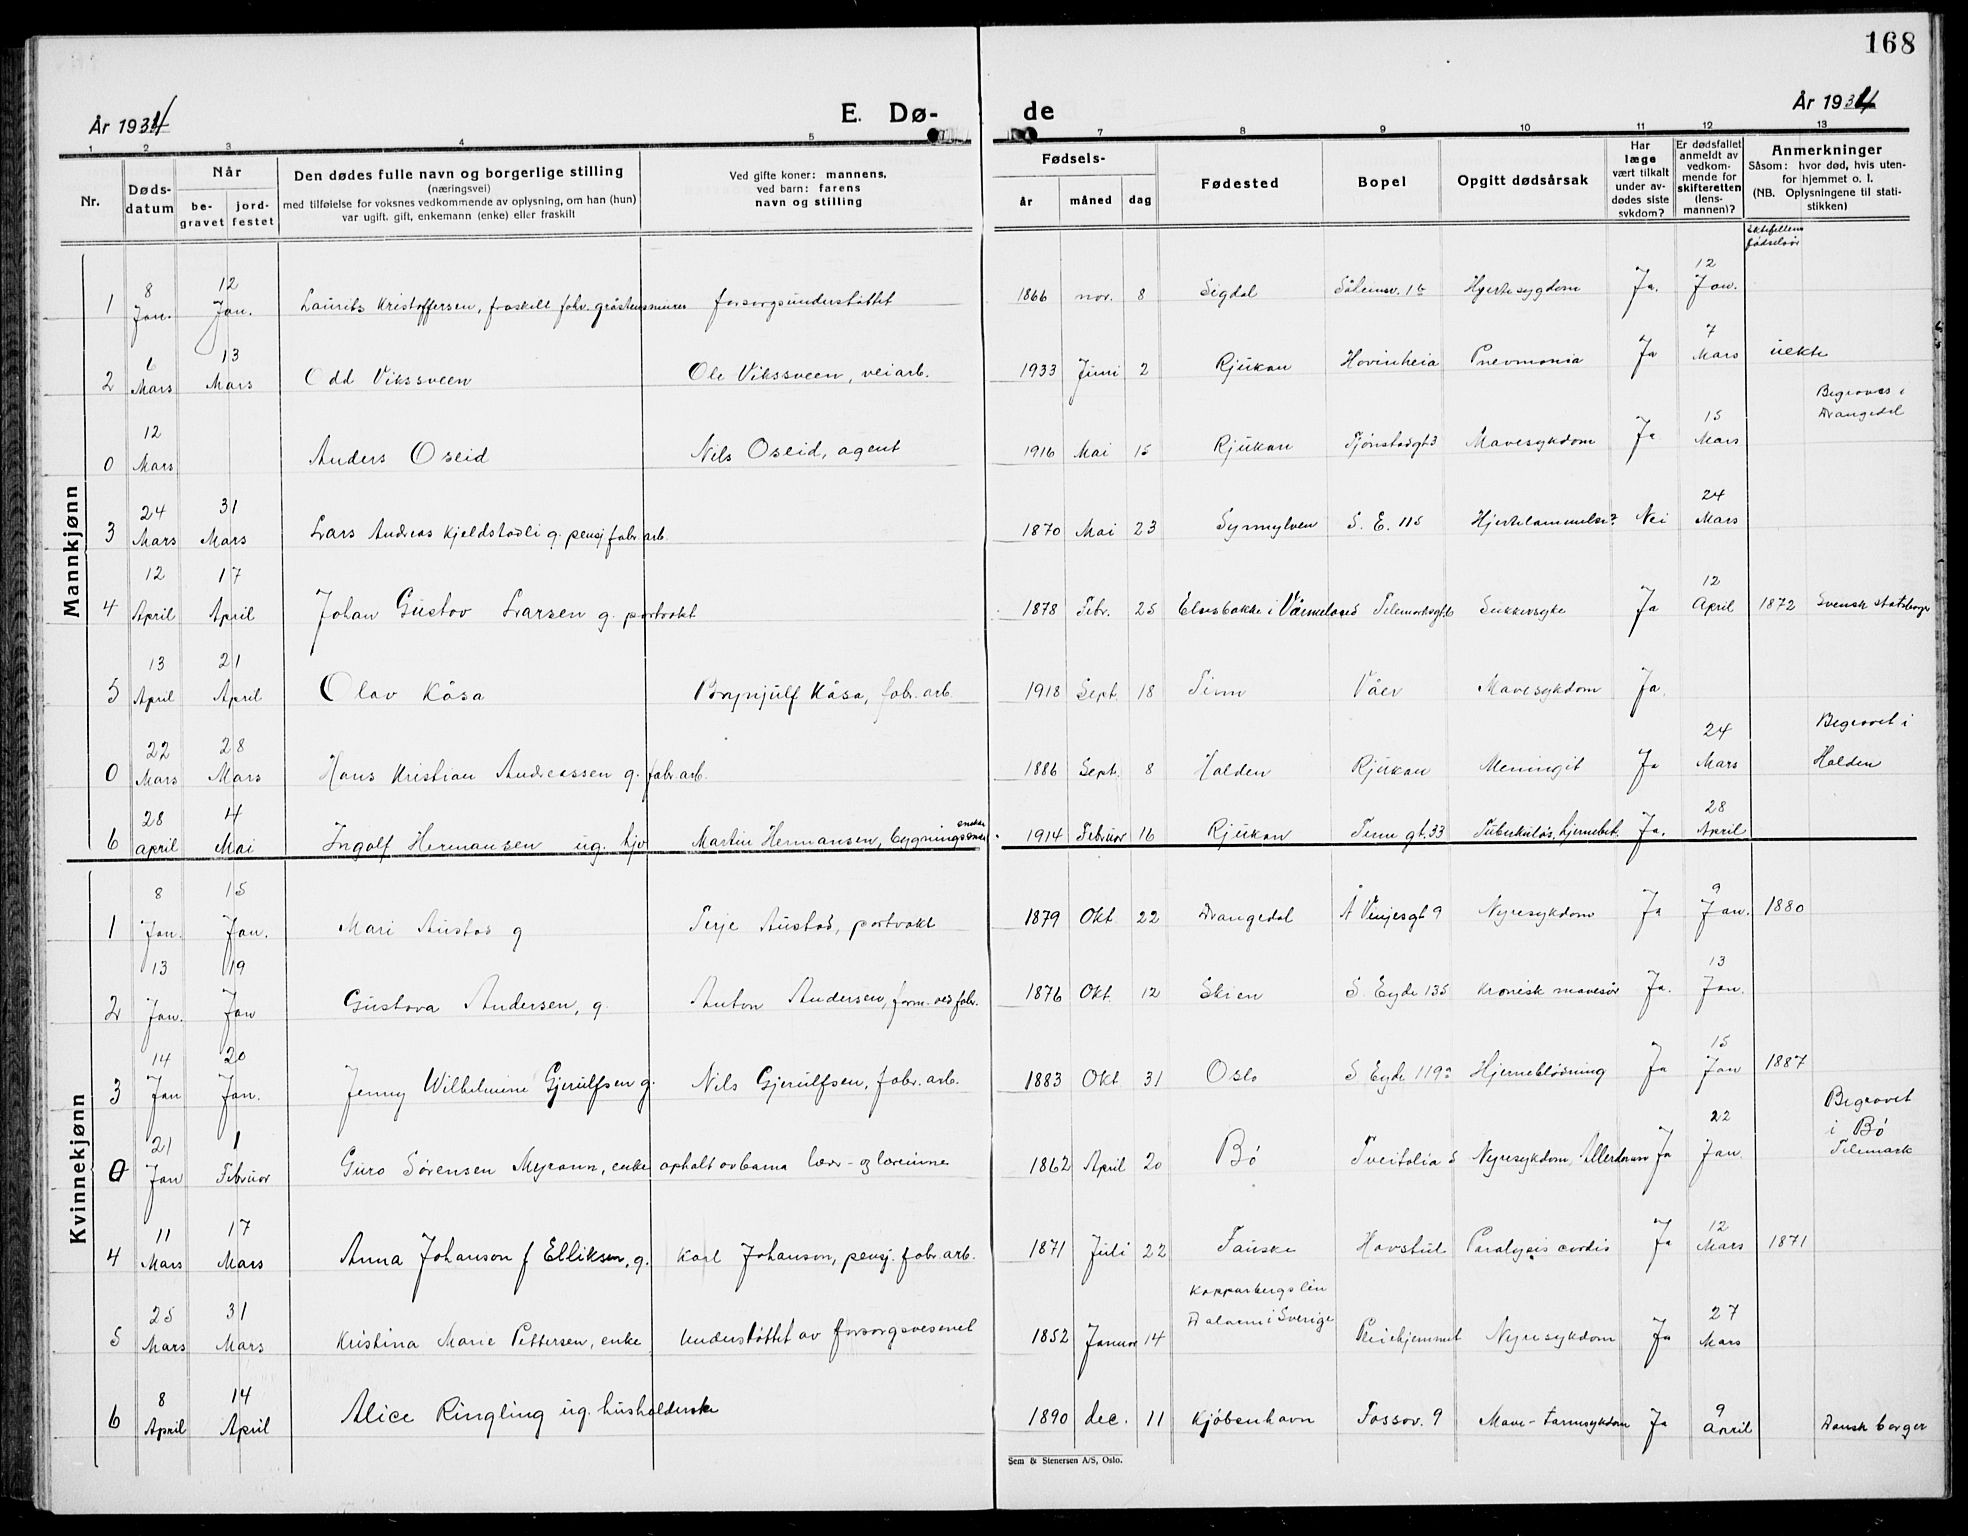 168
År 1934 E. Dø- de År 1934
1 2 3 4 5 7 8 9 10 11 12 13
Nr.
Døds-datum
Når
be-gravet
jord-festet
Den dødes fulle navn og borgerlige stilling
(næringsvei)
med tilføielse for voksnes vedkommende av oplysning, om han (hun)
var ugift, gift, enkemann (enke) eller fraskilt
Ved gifte koner: mannens,
ved barn: farens
navn og stilling
Fødsels-
år måned dag
Fødested
Bopel
Opgitt dødsårsak
Har læge vært tilkalt under av-dødes siste sykdom?
Er dødsfallet anmeldt av vedkom-mende for skifteretten (lens-mannen)?
Anmerkninger
Såsom: hvor død, hvis uten-for hjemmet o. l.
(NB. Oplysningene til stati-stikken)
Ektefellens fødselsår
Mannkjønn
1 8 Jan. 12 Jan. Laurits Kristoffersen, fraskilt fabr. gråstensmurer forsorgsunderstøttet 1866 nov. 8 Sigdal Såheimsv. 16 Hjertesygdom Ja. 12 Jan.
2 6 Mars 13 Mars Odd Vikssveen Ole Vikssveen, veiarb. 1933 Juni 2 Rjukan Hovinheia Pnevmonia Ja 7 Mars uekte
0 12 Mars Anders Oseid Nils Oseid, agent 1916 Mai 15 Rjukan Tjönstadgt 3 Mavesykdom Ja 15 Mars Begraves i Drangedal
3 24 Mars 31 Mars Lars Andreas Kjeldstadli g. pensj fabr. arb. 1870 Mai 23 Synnylven S. E. 115 Hjertelammelse? Nei 24 Mars
4 12 April 17 April Johan Gustav Larsen g. portvakt 1878 Febr. 25 Elvsbakke i Värmeland Telemarksgt 6 Sukkersyke Ja 12 April 1872 Svensk statsborger
5 13 April 21 April Olav Kåsa Brynjulf Kåsa, fabr. arb. 1918 Sept. 18 Tinn Våer Mavesykdom Ja.
0 22 Mars 28 Mars Hans Kristian Andreassen g. fabr. arb. 1886 Sept. 8 Halden Rjukan Meningit Ja 24 Mars Begravet i Halden
6 28 april 4 Mai Ingolf Hermansen ug. hjv Martin Hermansen, bygningssnekker 1914 Februar 16 Rjukan Tinn gt. 33 Tuberkuløs. hjernebet. Ja. 28 April
Kvinnekjønn
1 8 Jan. 15 Jan. Mari Austad g Terje Austad, portvakt 1879 Okt. 22 Drangedal A Vinjesgt 9 Nyresykdom Ja 9 Jan. 1880
2 13 Jan. 19 Jan Gustava Andersen, g. Anton Andersen, form. ved fabr. 1876 Okt. 12 Skien S. Eyde 135 Kronisk mavesår Ja. 13 Jan.
3 14 Jan 20 Jan. Jenny Wilhelmine Gjerulfsen g. Nils Gjerulfsen, fabr. arb. 1883 Okt. 31 Oslo S Eyde 119 Hjerneblødning Ja 15 Jan 1887
0 21 Jan 1 Februar Guro Sørensen Myrann, enke ophalt av barna lærer- og lærerinne 1862 April 20 Bö Tveitolia 5 Nyresykdom, Allerdomsv Ja 22 Jan Begravet i Bö Telemark
4 11 Mars 17 Mars Anna Johanson f Elliksen, g. Karl Johanson, pensj. fabr. arb. 1871 Juli 22 Fauske Havstul Paralysis cordis Ja 12 Mars 1871
5 25 Mars 31 Mars Kristina Marie Pettersen, enke Understöttet av forsorgsvesenet 1852 Januar 14 Kopparbergs len Dalarne i Sverige Pleiehjemmet Nyresykdom Ja 27 Mars
6 8 April 14 April Alice Ringling ug. husholderske 1890 dec. 11 Kjöbenhavn Fossov. 9 Mave-tarmsykdom Ja 9 April Dansk borger
Sem & Stenersen A/S, Oslo.